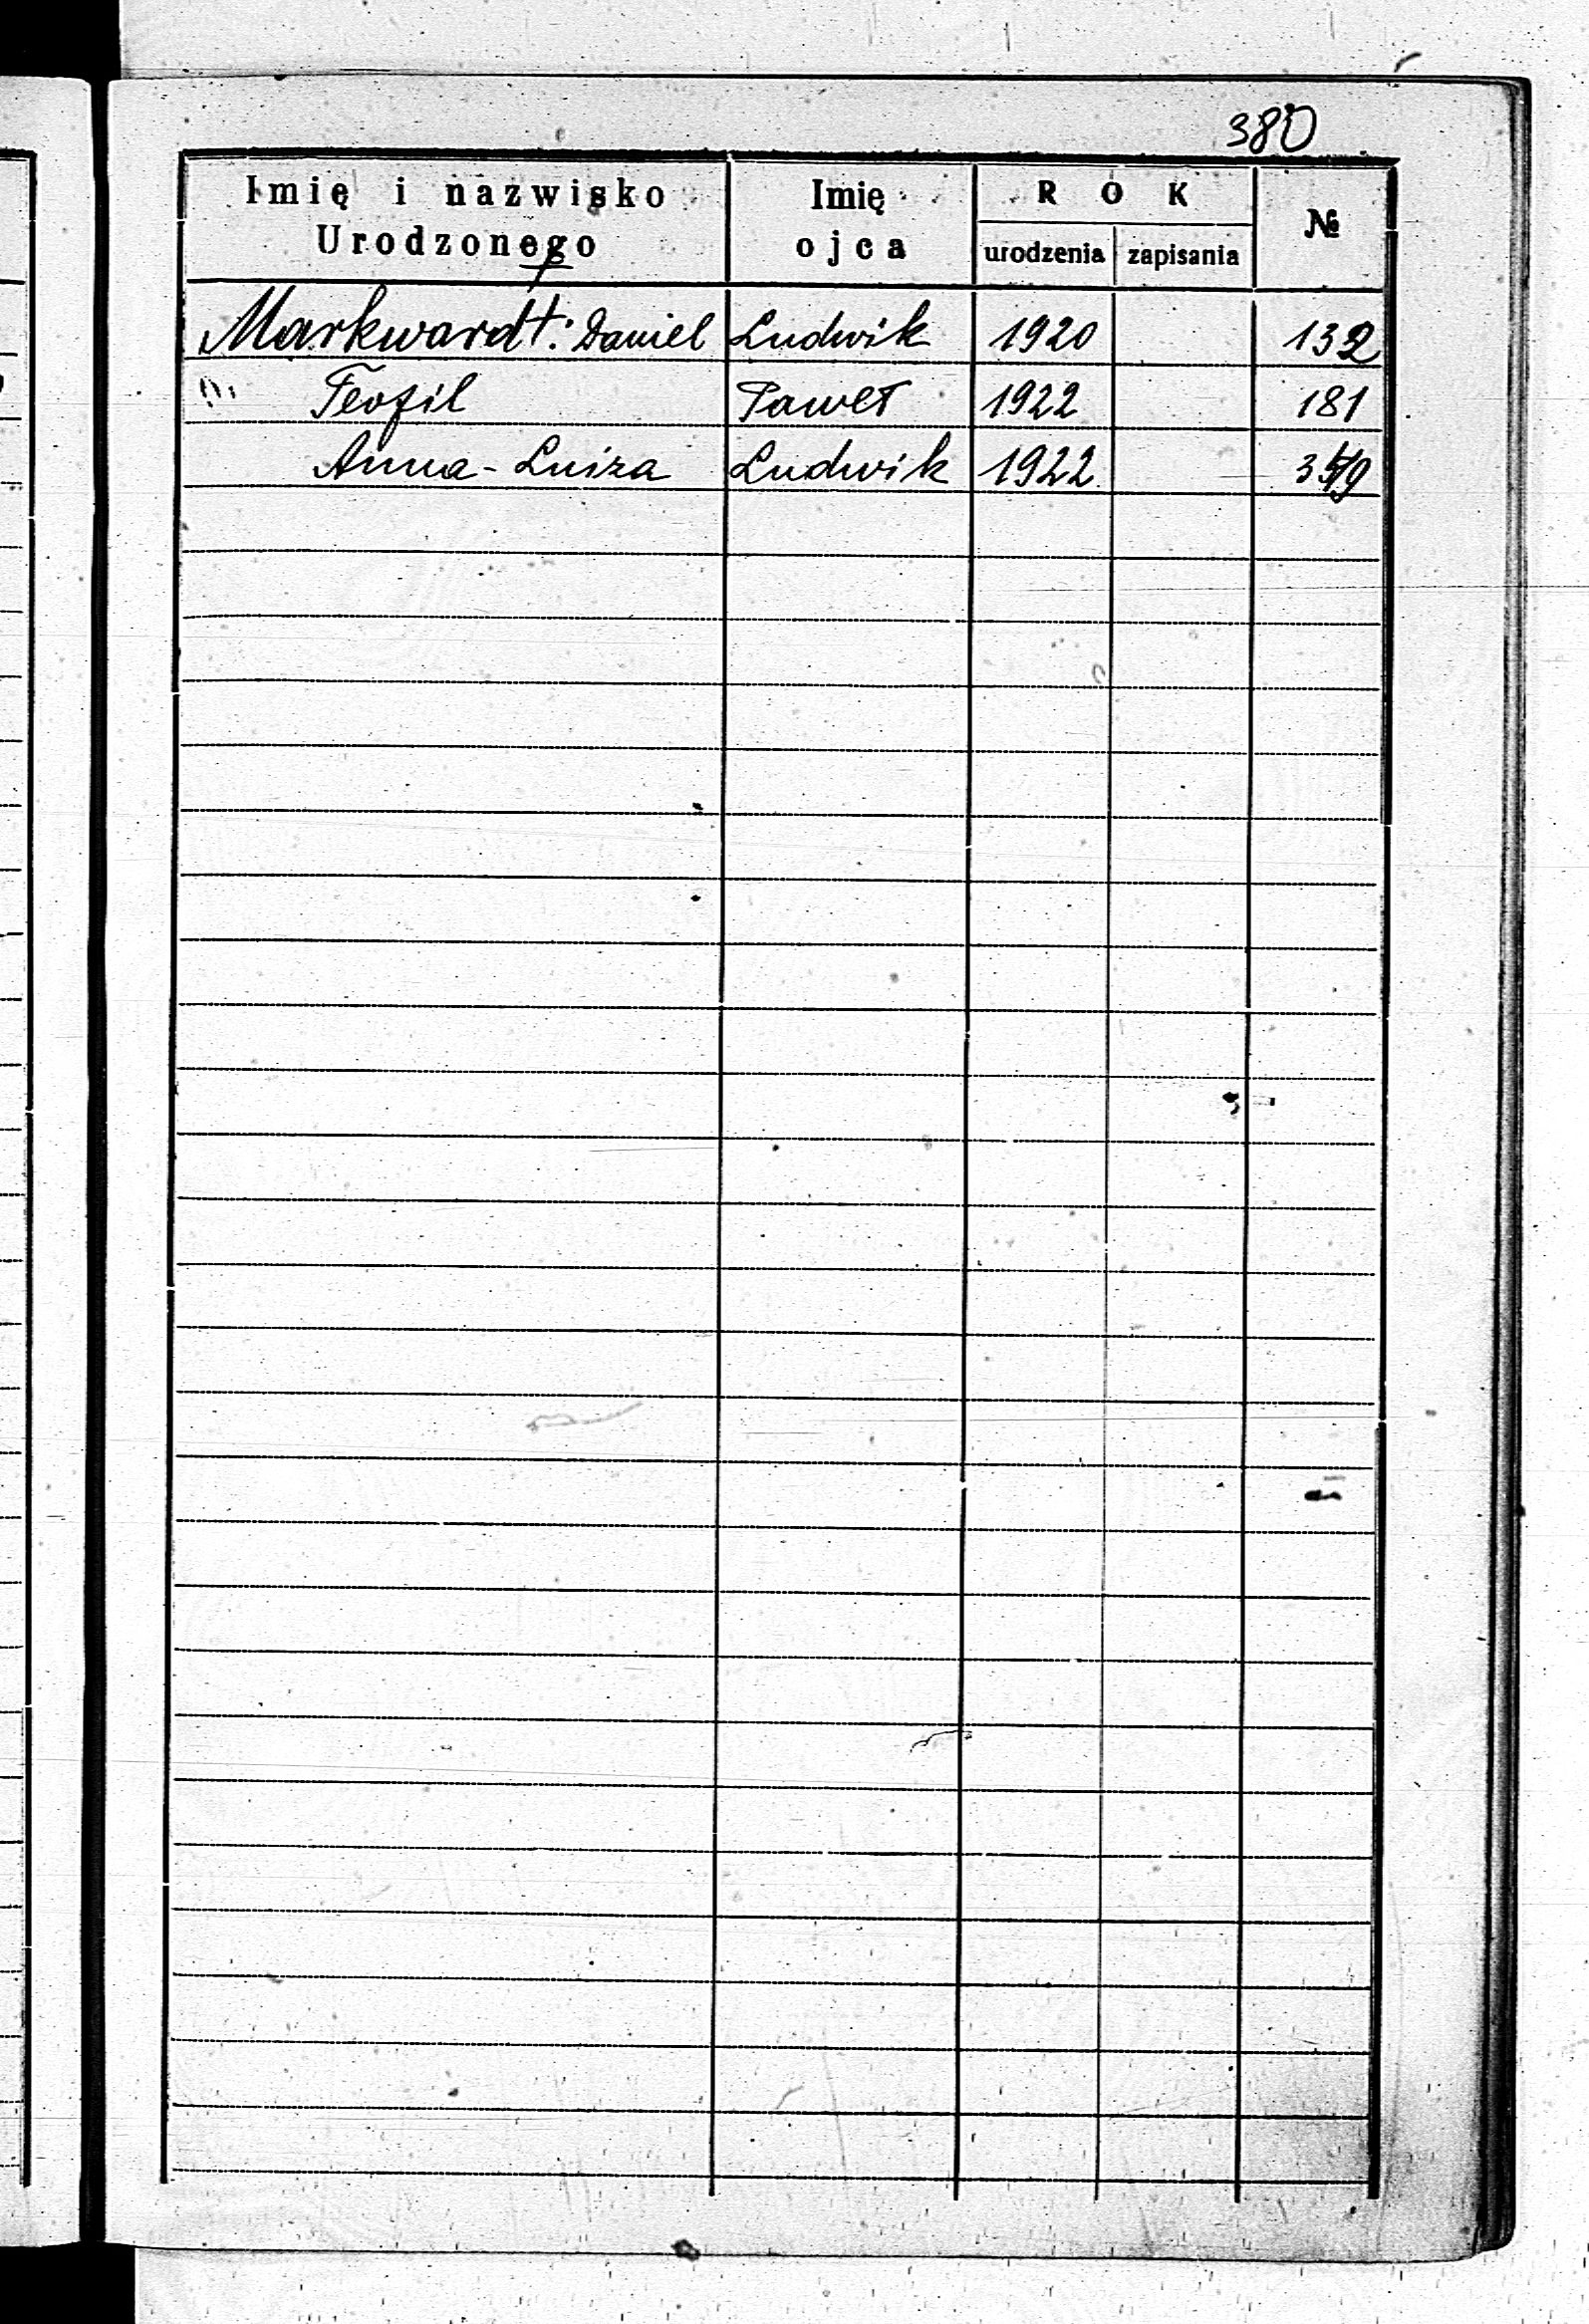 380
Imię i nazwisko Urodzonego Imię ojca ROK urodzenia zapisania №
Markwardt: Daniel Ludwik 1920 132
" Teofil Paweł 1922 181
Anna-Luiza Ludwik 1922